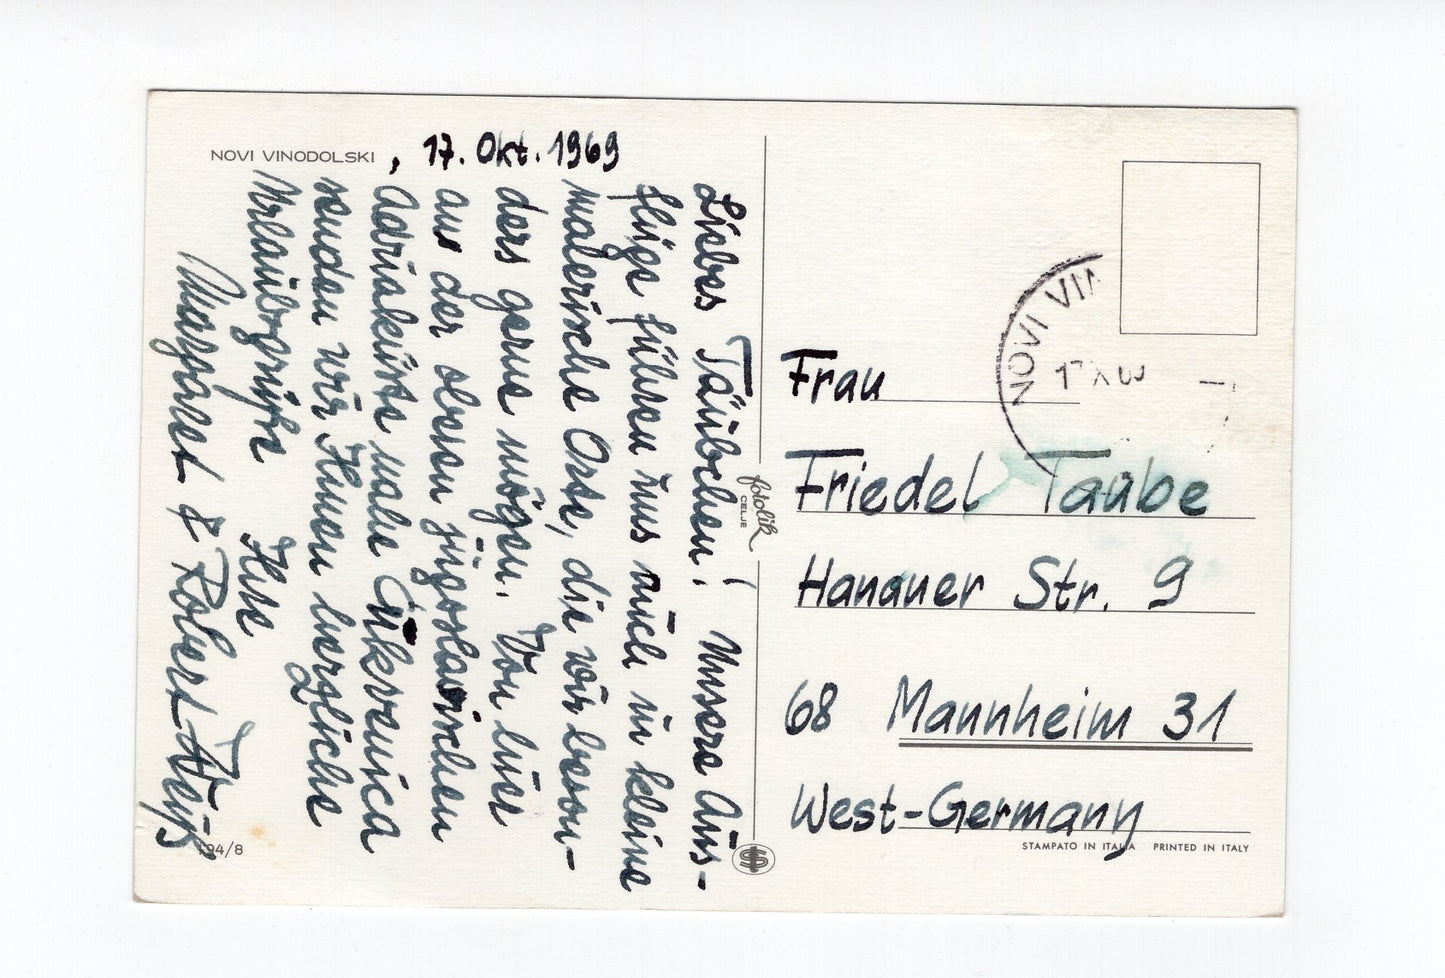 NOVI VINODOLSKI, 17. Okt. 1969
Liebes Täubchen! Unsere Aus-
flüge führen uns auch in kleine
malerische Orte, die wir beson-
ders gerne mögen. Von hier
aus der oberen jugoslawischen
Adriaküste nahe Crikvenica
senden wir Ihnen herzliche
Urlaubsgrüße Ihre
Margret & Robert Weiß
194/8
fotolik
CELJE
NOVI VIN
Frau
Friedel Taube
Hanauer Str. 9
68 Mannheim 31
West-Germany
STAMPATO IN ITALIA PRINTED IN ITALY